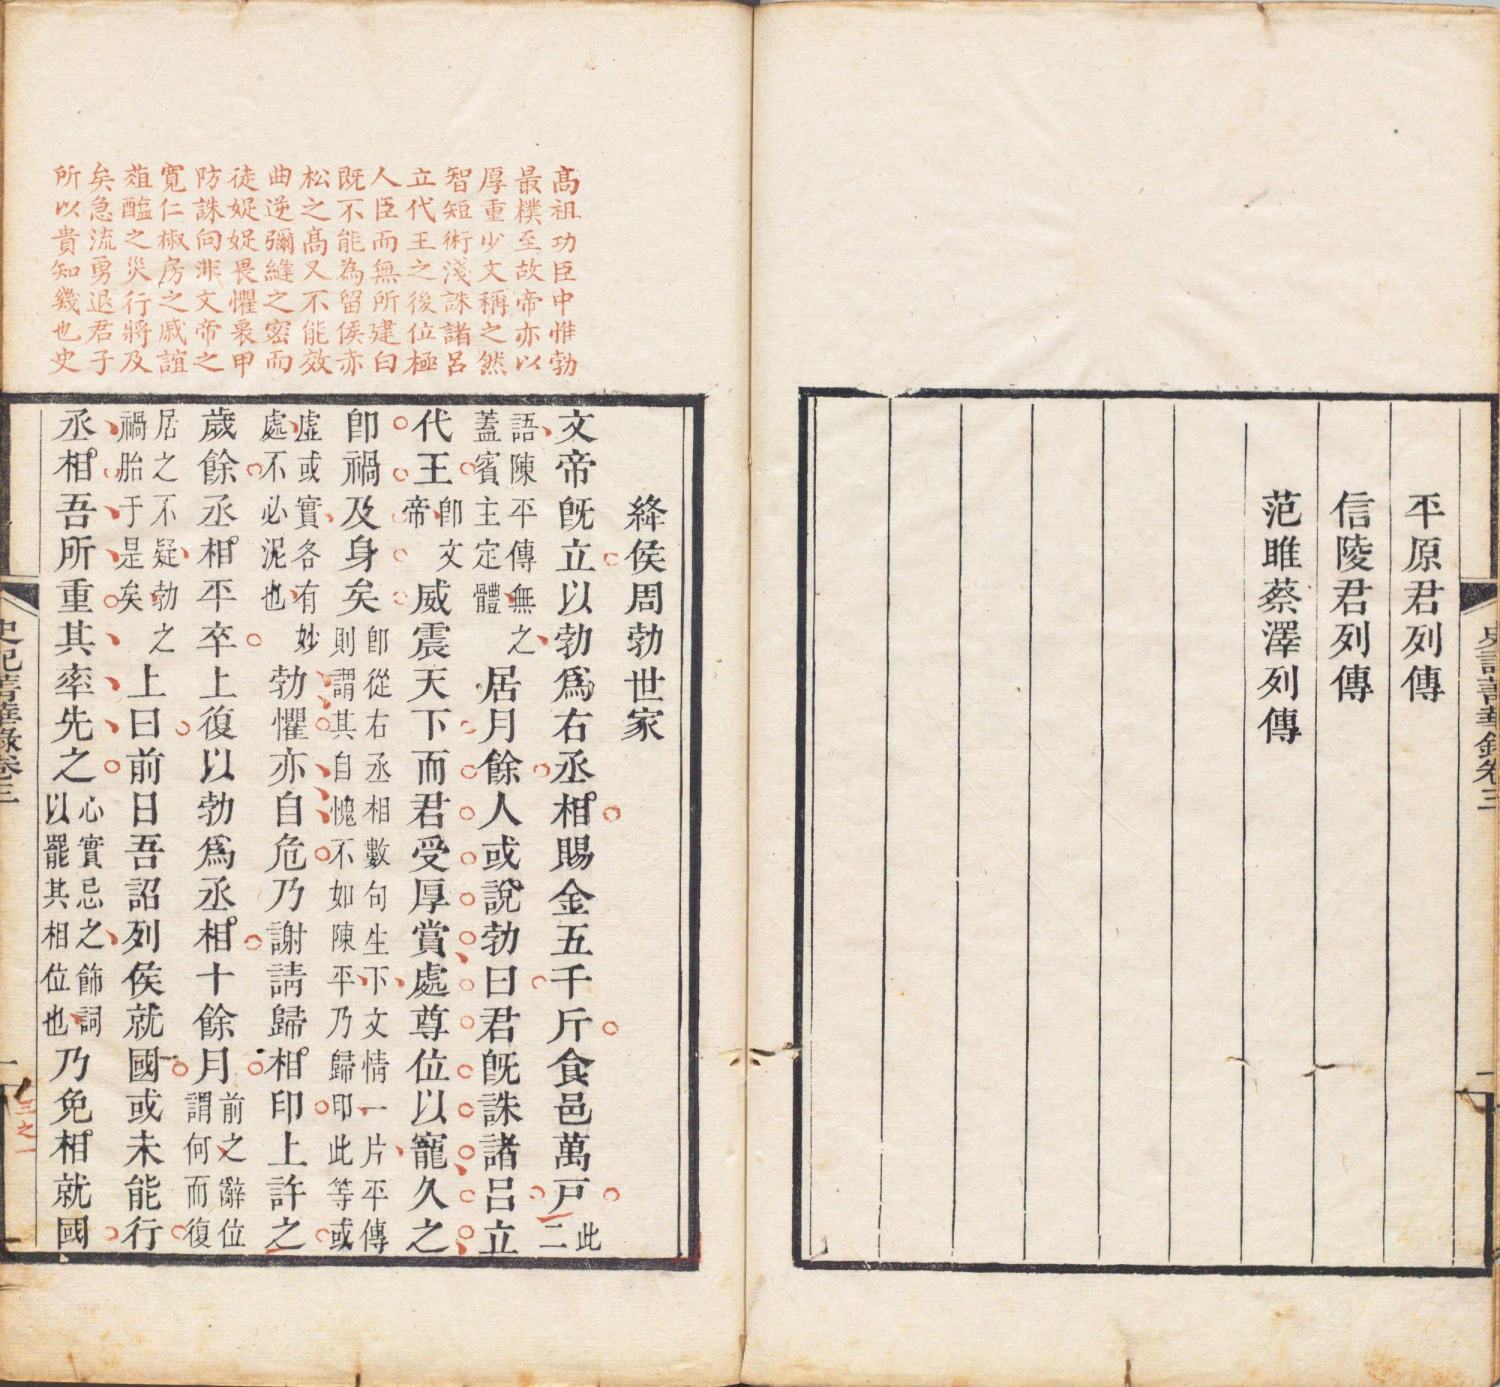 平原君列傳
信陵君列傳
范雎蔡澤列傳
史記菁華錄卷三
高祖功臣中惟勃
最樸至故帝亦以
厚重少文稱之然
智短術淺誅諸呂
立代王之後位極
人臣而無所建白
既不能為留侯赤
松之高又不能效
曲逆彌縫之密而
徒娖娖畏懼裹甲
防誅向非文帝之
寬仁椒房之戚誼
葅醢之災行將及
矣急流勇退君子
所以貴知幾也史
絳侯周勃世家
文帝旣立以勃爲右丞相賜金五千斤食邑萬戸此二
語陳平傳無之蓋賓主定體居月餘人或說勃曰君旣誅諸呂立
代王卽文帝威震天下而君受厚賞處尊位以寵久之
卽禍及身矣卽從右丞相數句生下文情一片平傳則謂其自愧不如陳平乃歸印此等或
虛或實各有妙處不必泥也勃懼亦自危乃謝請歸相印上許之
歲餘丞相平卒上復以勃爲丞相十餘月前之辭位謂何而復
居之不疑勃之禍胎于是矣上曰前日吾詔列侯就國或未能行
丞相吾所重其率先之心實忌之飾詞以罷其相位也乃免相就國
史記菁華錄卷三
一
三之一